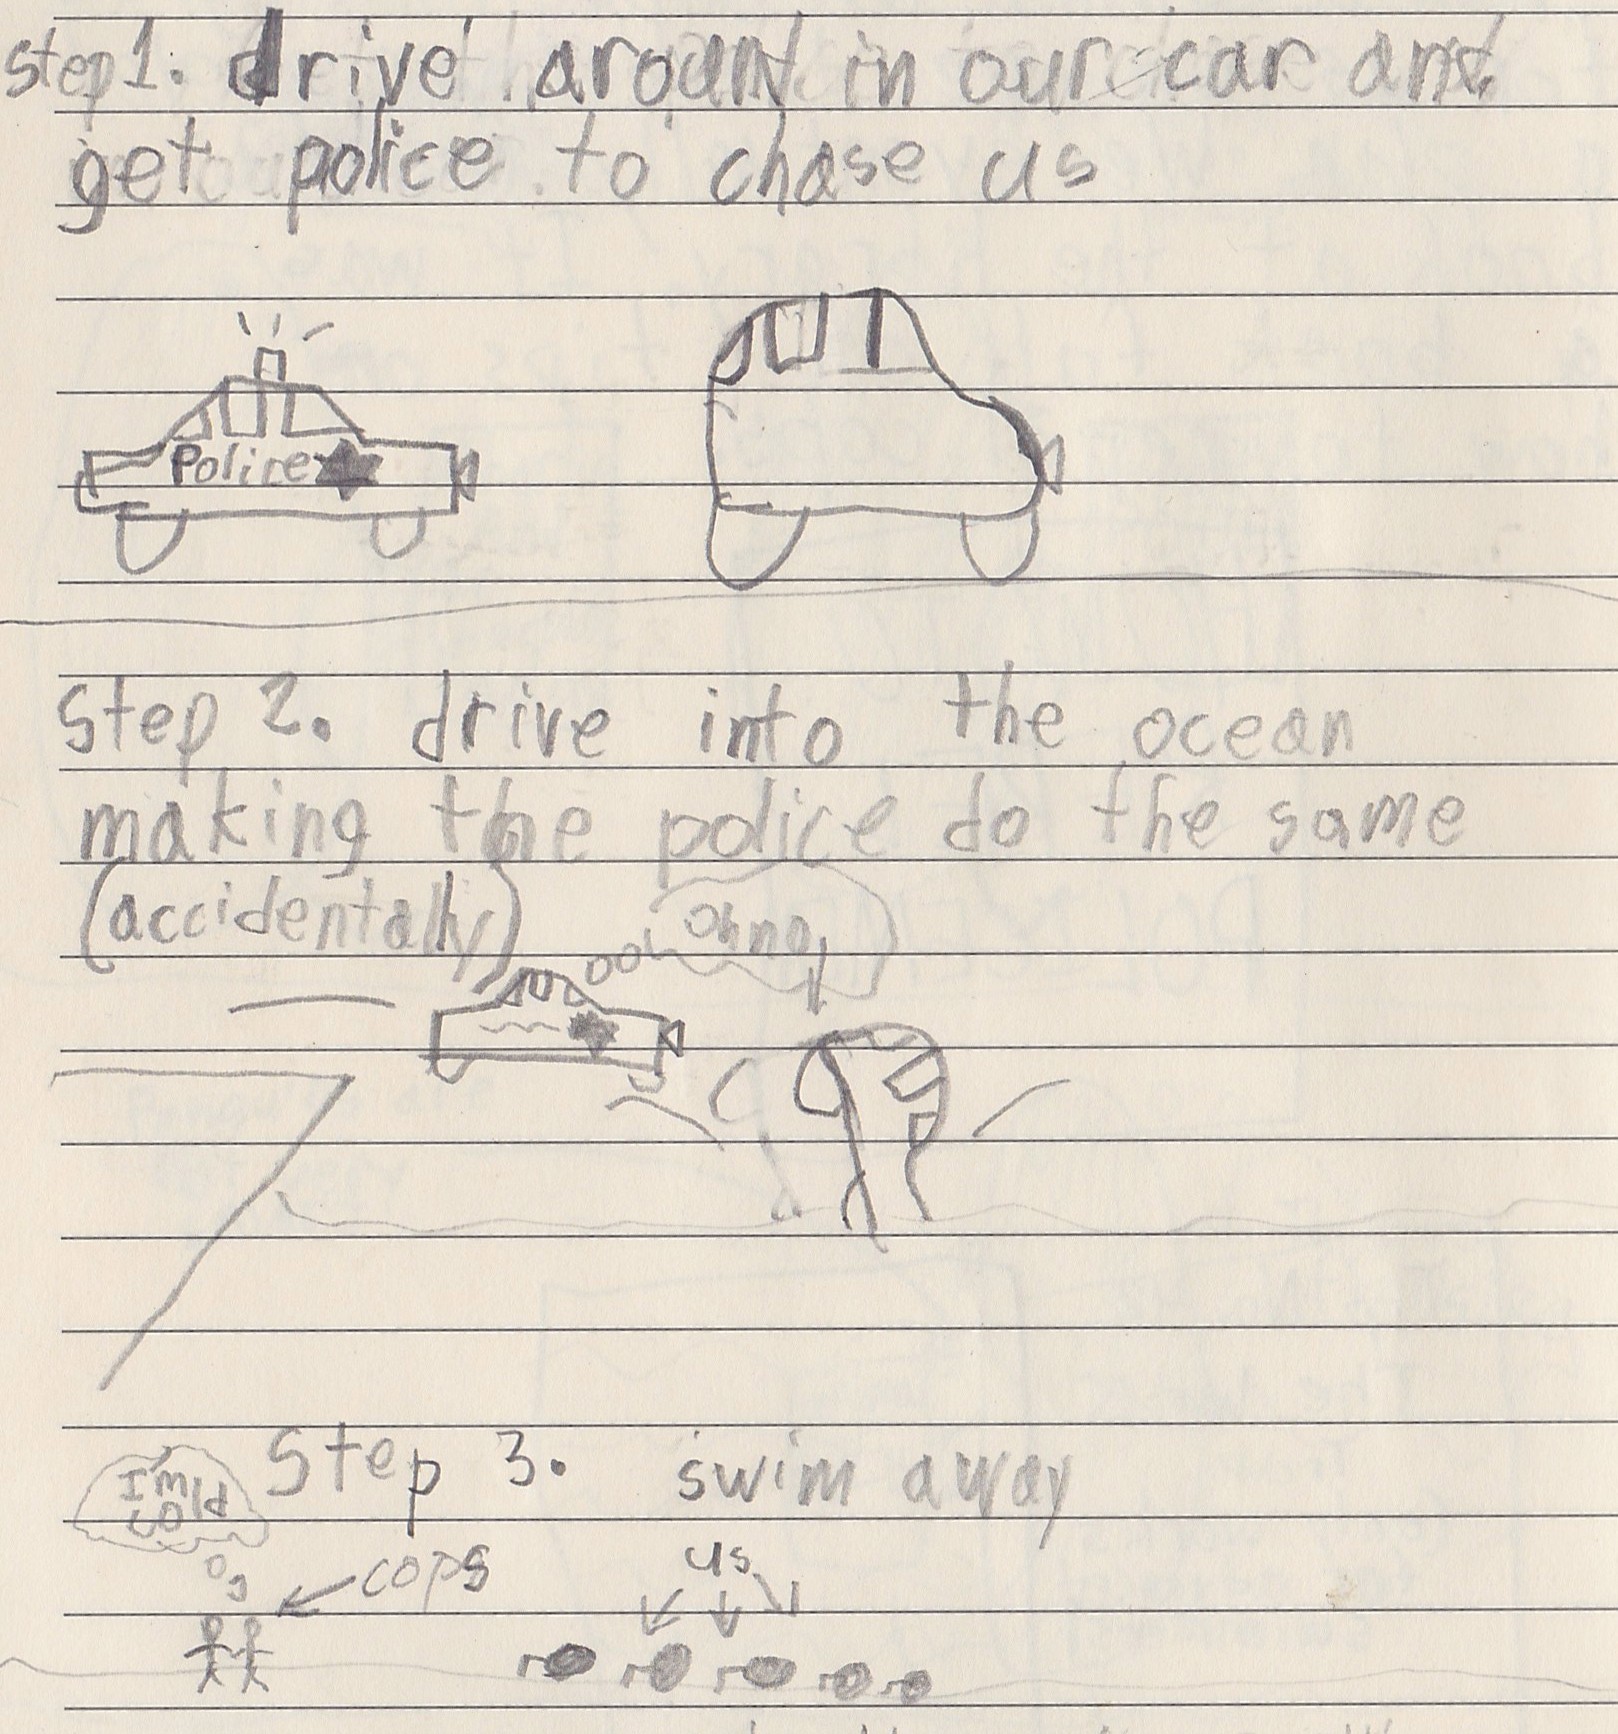 step 1. drive arount in our car and
get police to chase us
Police
Step 2. drive into the ocean
making the police do the same
(accidentally)
Oh no!
Step 3. swim away
I'm
cold
cops
us